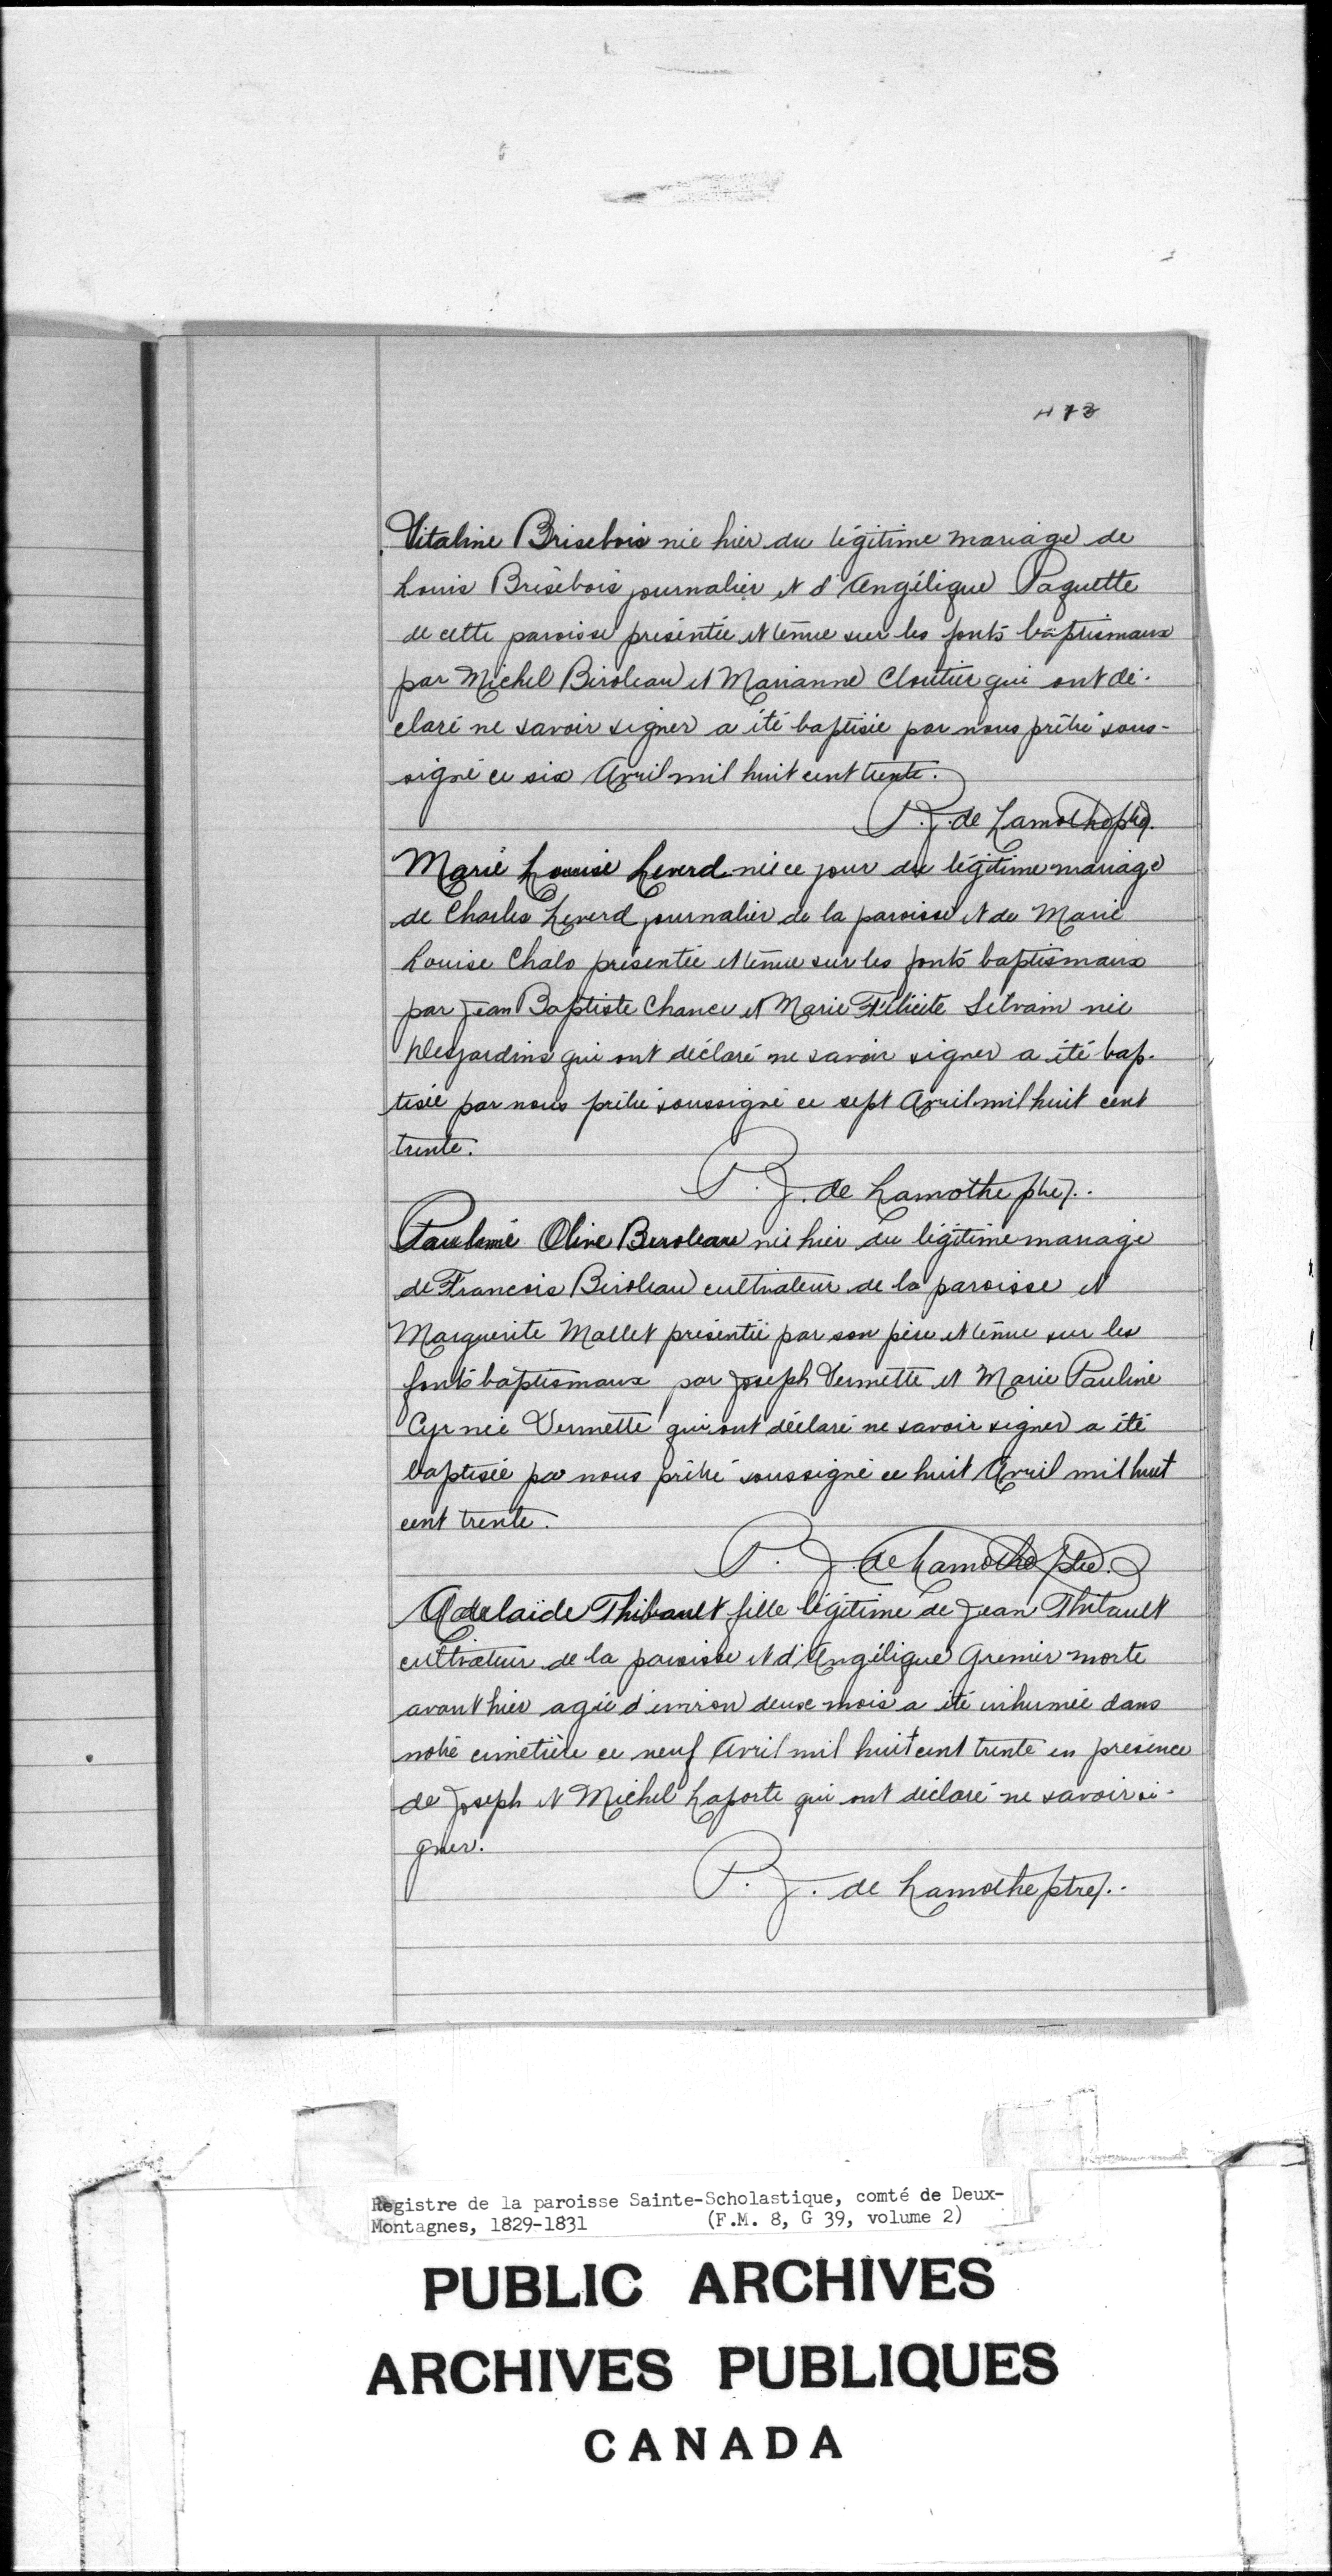 Vitaline Brisebois née hier du légitime mariage de
Louis Brisebois journalier et d'Angélique Paquette
de cette paroisse présentée et tenue sur les fonts baptismaux
par Michel Biroleau et Marianne Cloutier qui ont dé-
claré ne savoir signer a été baptisée par nous prêtre sous-
signé ce six Avril mil huit cent trente.
P. J. de Lamothe ptre.
Marie Louise Leverd née ce jour du légitime mariage
de Charles Leverd journalier de la paroisse et de Marie
Louise Chalo présentée et tenue sur les fonts baptismaux
par Jean Baptiste Chance et Marie Félicité Silvain née
Desjardins qui ont déclaré ne savoir signer a été bap-
tisée par nous prêtre soussigné ce sept Avril mil huit cent
trente.
P. J. de Lamothe ptre.
Olive Biroleau née hier du légitime mariage
de Francois Biroleau cultivateur de la paroisse et
Marguerite Mallet présentée par son père et tenue sur les
fonts baptismaux par Joseph Vermette et Marie Pauline
Cyr née Vermette qui ont déclaré ne savoir signer a été
baptisée par nous prêtre soussigné ce huit Avril mil huit
cent trente.
P. J. de Lamothe Ptre.
Adelaïde Thibault fille légitime de Jean Thibault
cultivateur de la paroisse et d'Angélique Grenier morte
avant hier agée d'environ deux mois a été inhumée dans
notre cimetière ce neuf Avril mil huit cent trente en présence
de Joseph et Michel Laporte qui ont déclaré ne savoir si-
gner.
P. J. de Lamothe ptre.
Registre de la paroisse Sainte-Scholastique, comté de Deux-
Montagnes, 1829-1831 (F.M. 8, G 39, volume 2)
PUBLIC ARCHIVES
ARCHIVES PUBLIQUES
CANADA